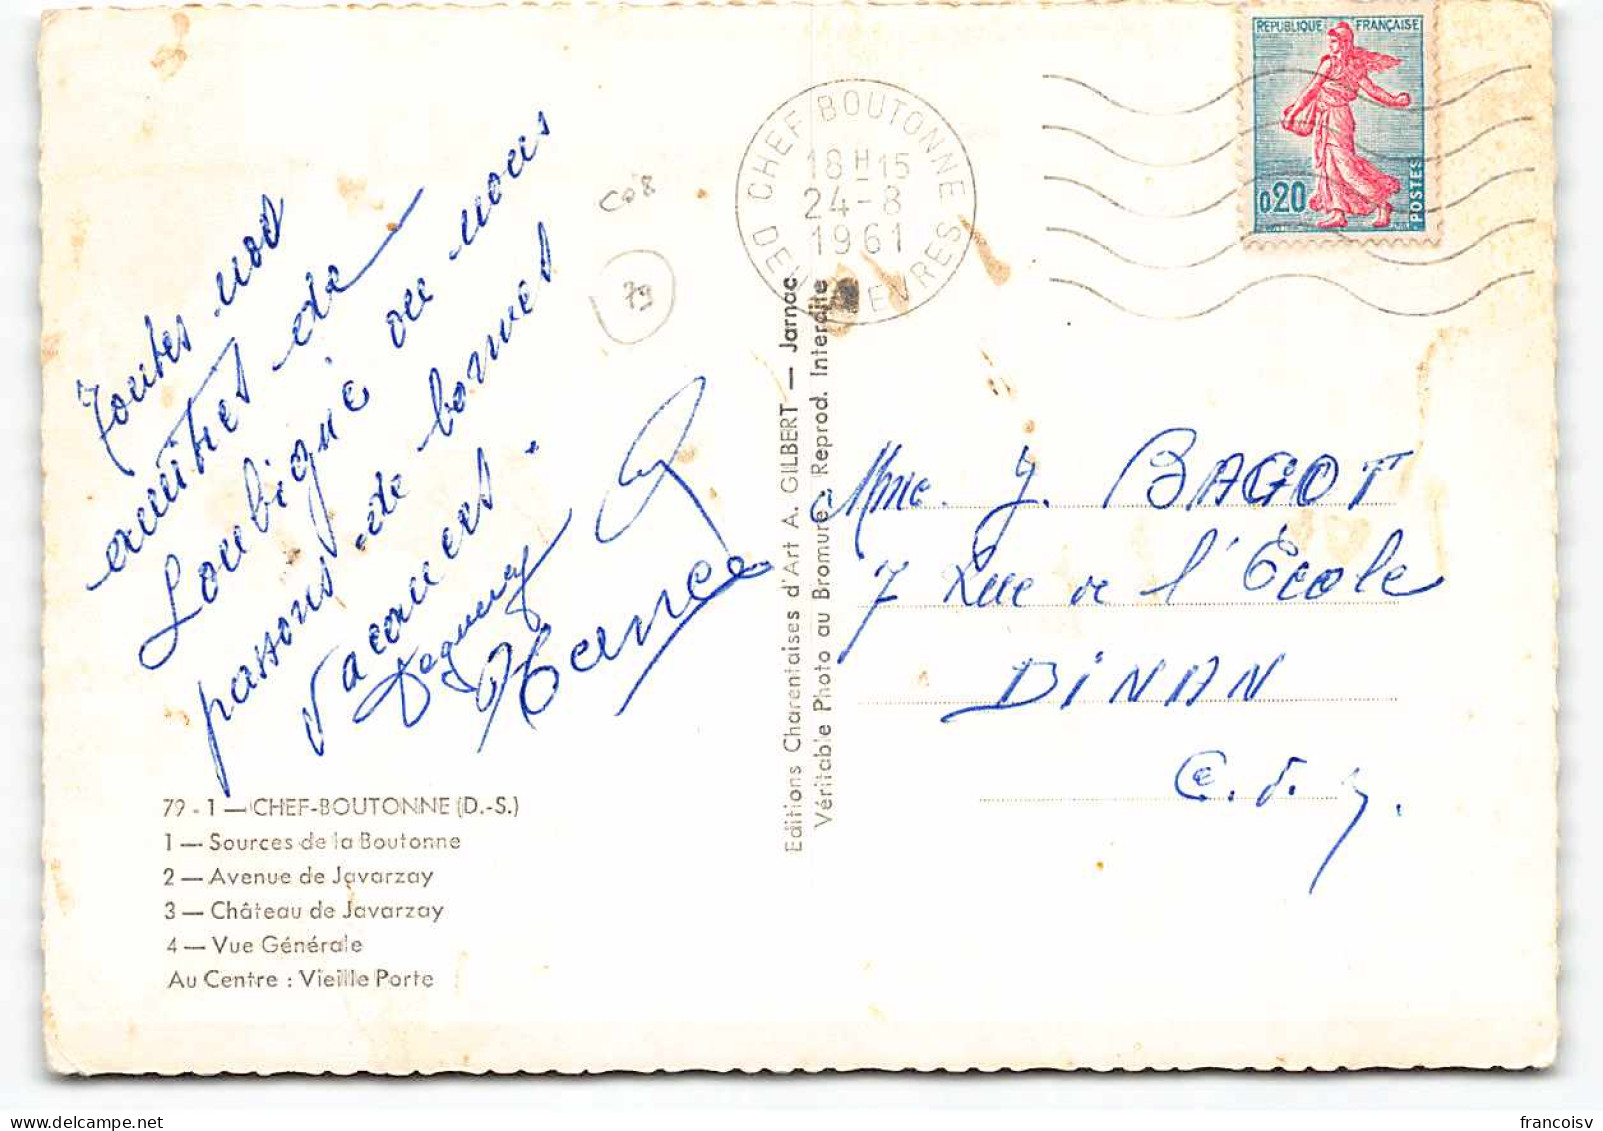 Toutes nos
amitiés de
Loubigné où nous
passons de bonnes
vacances.
CO8
79
CHEF BOUTONNE
18H15
24-8
1961
DEUX SEVRES
REPUBLIQUE FRANÇAISE
0,20
POSTES
Mme. Y. BAGOT
7 Rue de l'École
DINAN
C.d.N.
Editions Charentaises d'Art A. GILBERT — Jarnac
Véritable Photo au Bromure. Reprod. Interdite
79 - 1 — CHEF-BOUTONNE (D.-S.)
1 — Sources de la Boutonne
2 — Avenue de Javarzay
3 — Château de Javarzay
4 — Vue Générale
Au Centre : Vieille Porte
francoisv